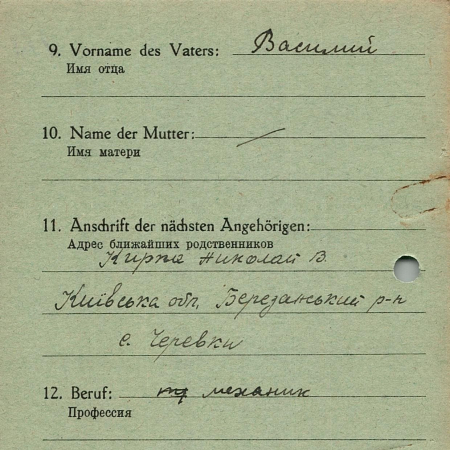 9. Vorname des Vaters: Василий
Имя отца
10. Name der Mutter: —
Имя матери
11. Anschrift der nächsten Angehörigen:
Адрес ближайших родственников
Кирпа Николай В.
Київська обл, Березанський р-н
с. Черевки
12. Beruf: механик
Профессия